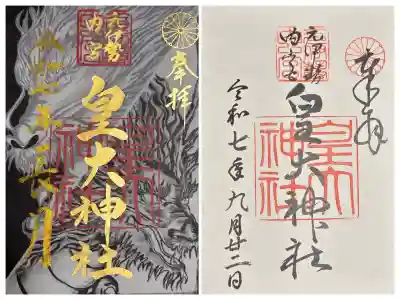 奉拝
元伊勢
内宮
皇大神社
皇大
神社
令和七年長月
奉拝
元伊勢
内宮
皇大神社
皇大
神社
令和七年九月廿二日